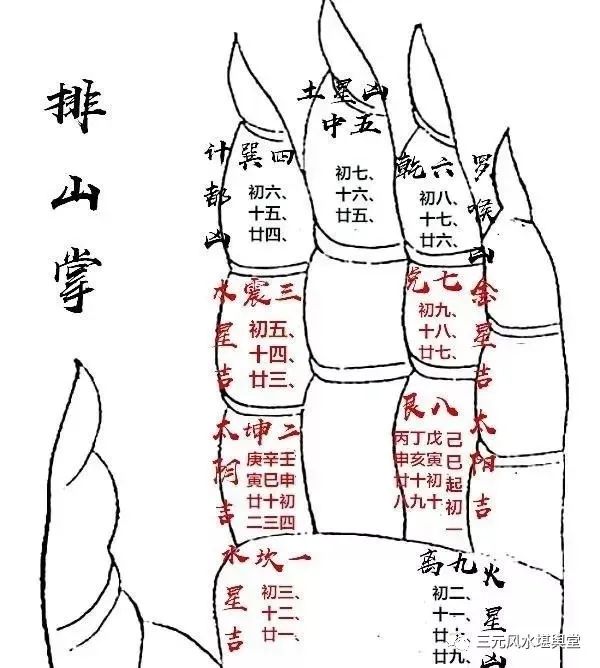 排山掌
土星凶
五中
初七、
十六、
廿五、
四巽
计都凶
初六、
十五、
廿四、
六乾
罗㬋凶
初八、
十七、
廿六、
三震
水星吉
初五、
十四、
廿三、
七兑
金星吉
初九、
十八、
廿七、
二坤
太阴吉
壬申初四
辛巳十三
庚寅廿二
八艮
太阳吉
己巳起初一
戊寅初十
丁亥十九
丙申廿八
一坎
水星吉
初三、
十二、
廿一、
九离
火星凶
初二、
十一、
二十、
廿九、
三元风水堪舆堂